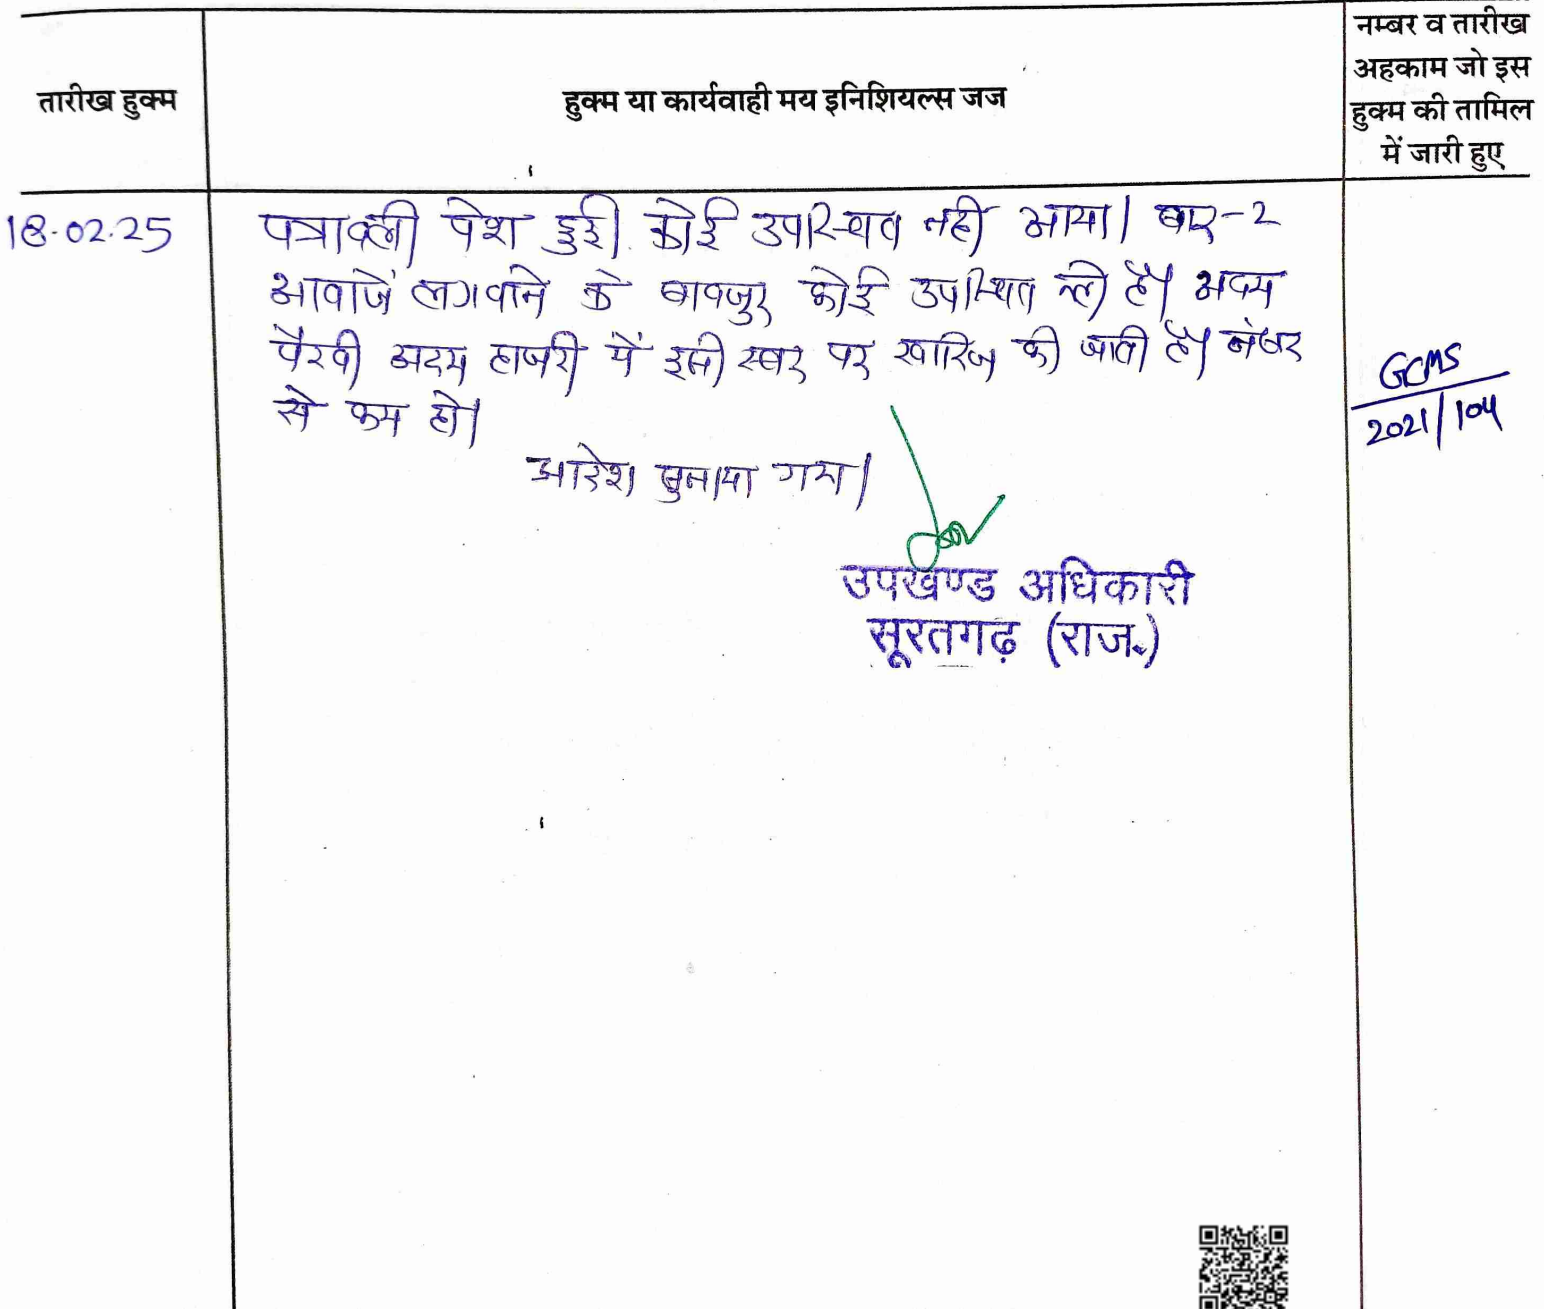 तारीख हुक्म
हुक्म या कार्यवाही मय इनिशियल्स जज
नम्बर व तारीख
अहकाम जो इस
हुक्म की तामिल
में जारी हुए
18.02.25
पत्रावली पेश हुई। कोई उपस्थित नही आया। बार-2
आवाजें लगवाने के बावजुद कोई उपस्थित नही है। अदम
पैरवी अदम हाजरी में इसी स्तर पर खारिज की जाती है। नंबर
से कम हो।
आदेश सुनाया गया।
GCMS
2021/104
उपखण्ड अधिकारी
सूरतगढ़ (राज.)